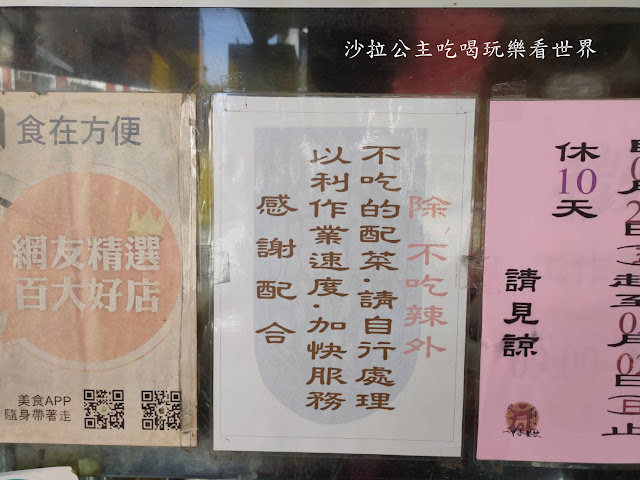 沙拉公主吃喝玩樂看世界
食在方便
網友精選
百大好店
美食APP
隨身帶著走
除，不吃辣外
不吃的配菜·請自行處理
以利作業速度·加快服務
感謝配合
休10天
請見諒